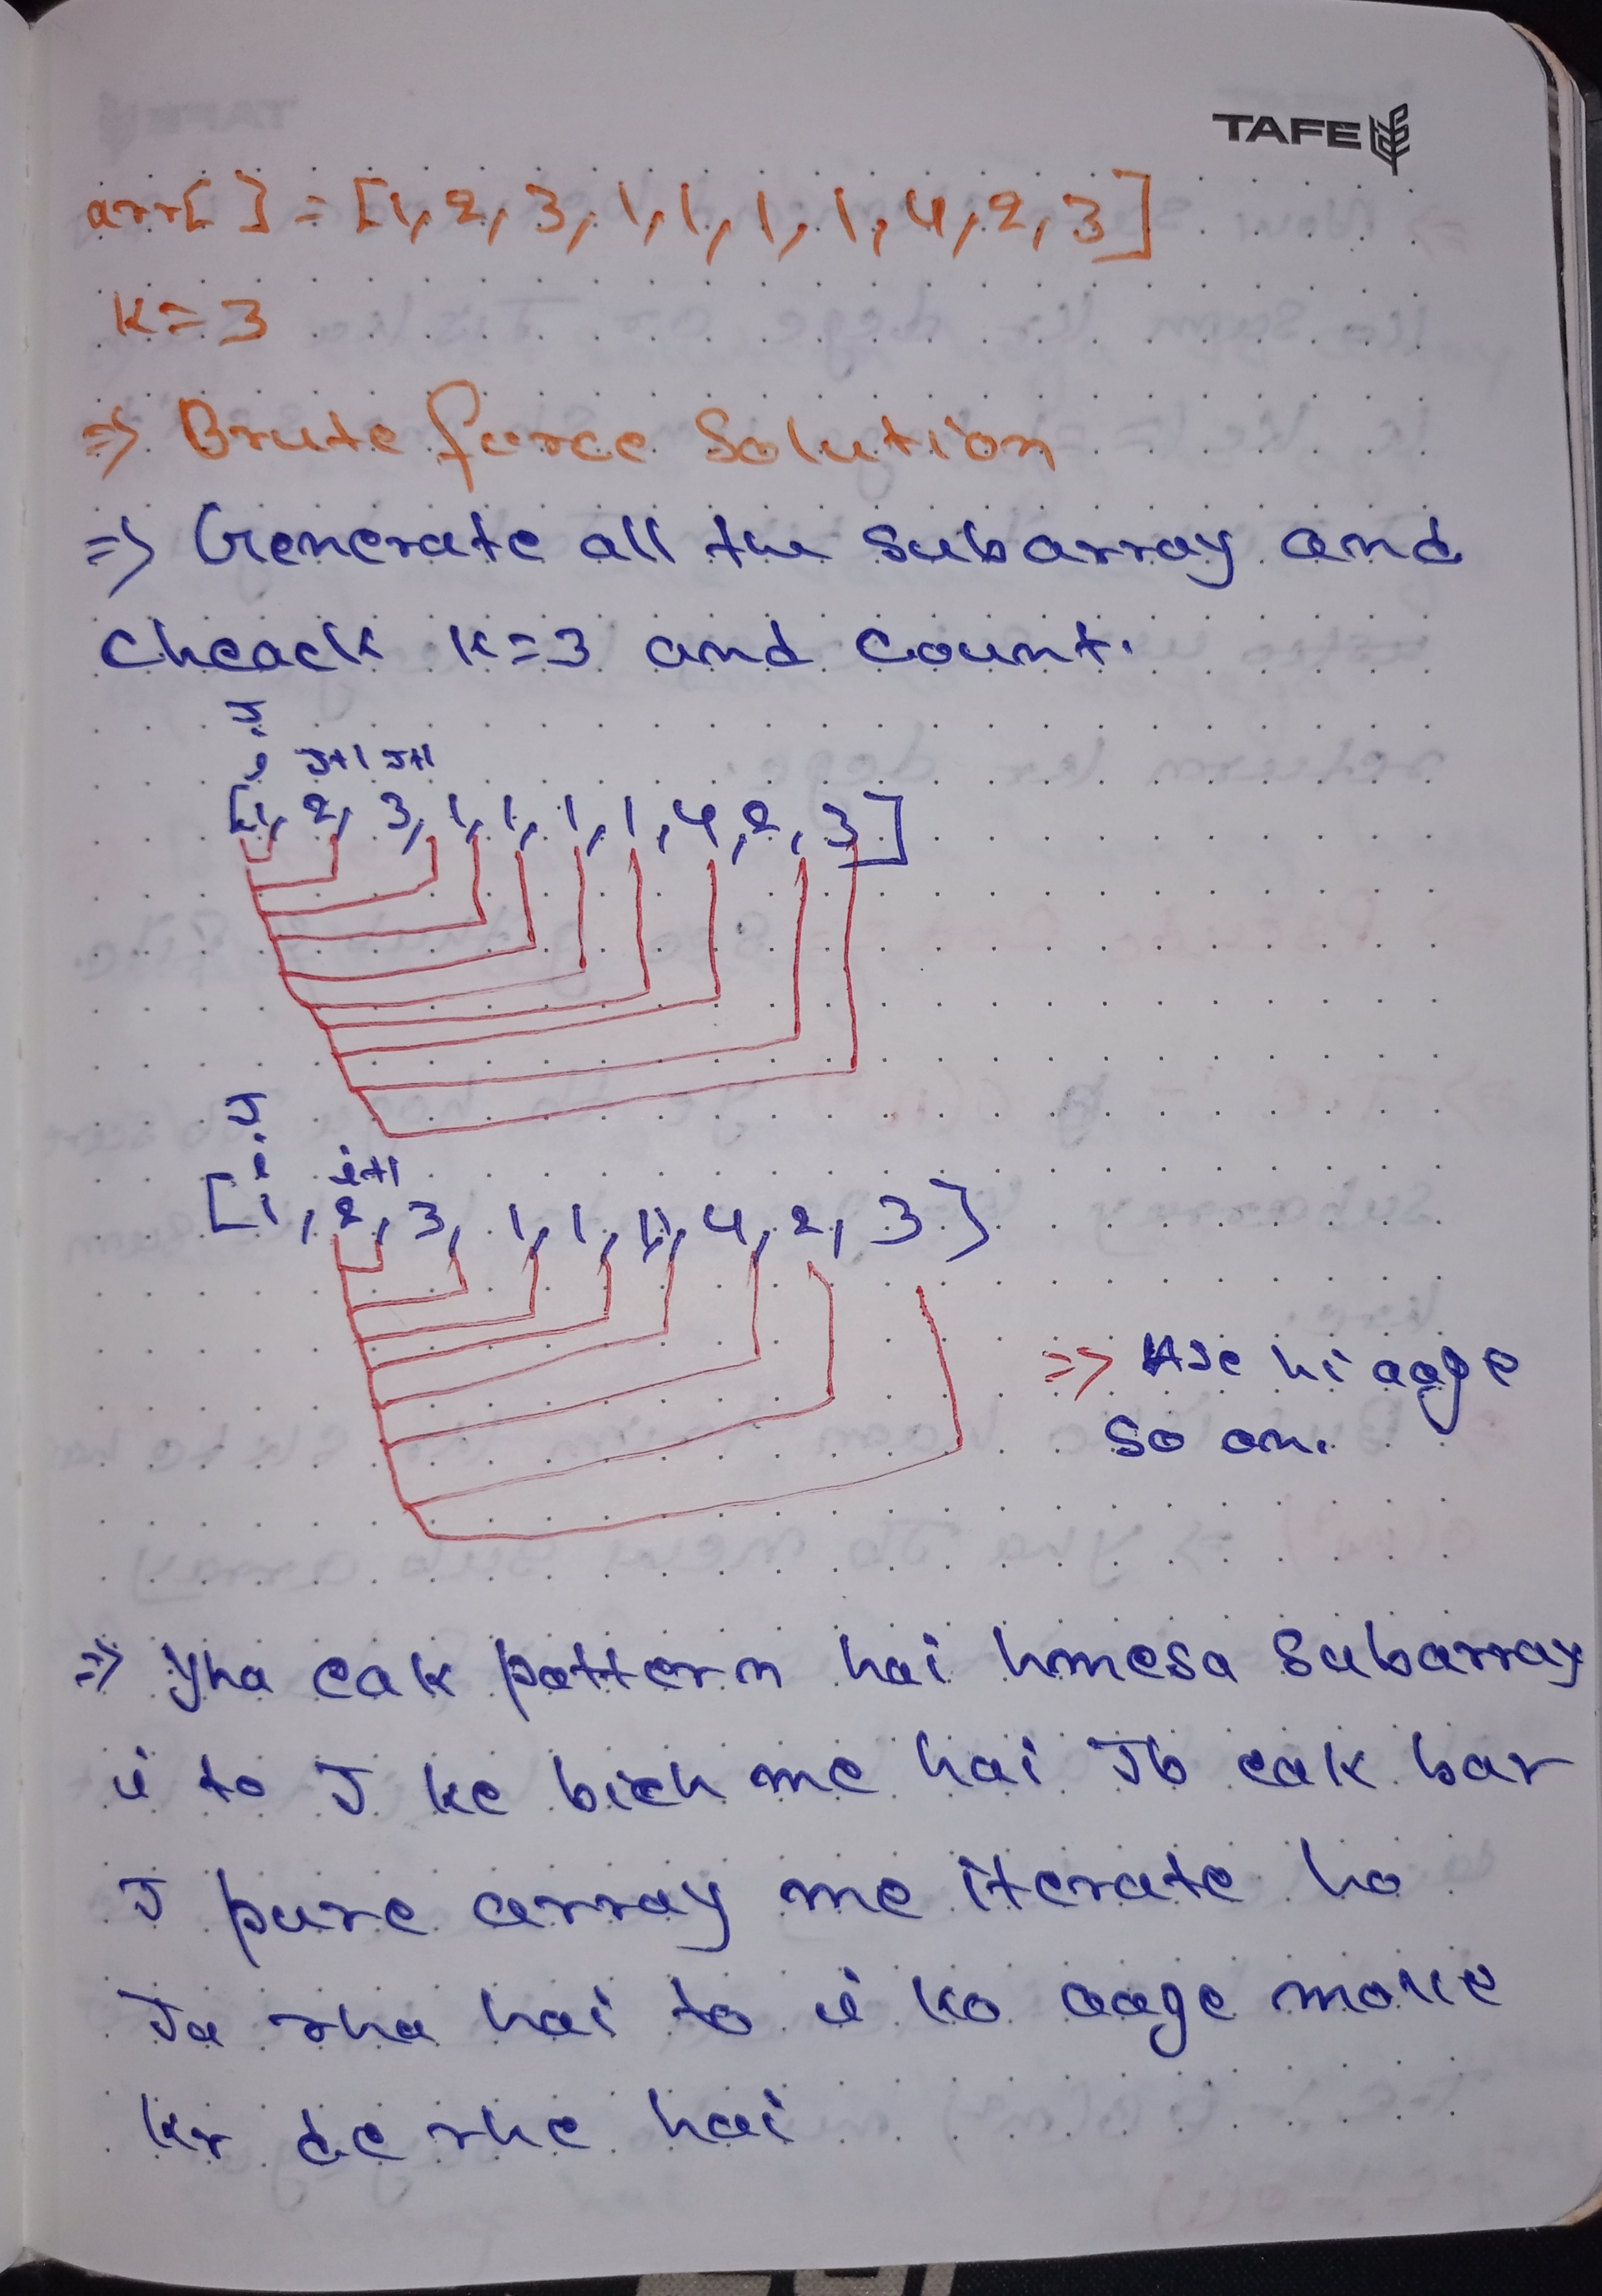 TAFE
arr[ ] = [1, 2, 3, 1, 1, 1, 1, 4, 2, 3]
K = 3
=> Brute force Solution
=> Generate all the subarray and
Cheack K=3 and count.
J
i J+1 J+1
[1, 2, 3, 1, 1, 1, 1, 4, 2, 3]
J
i i+1
[1, 2, 3, 1, 1, 1, 4, 2, 3]
=> Ase hi aage
So on.
=> Yha eak pattern hai hmesa Subarray
i to J ke bich me hai Jb eak bar
J pure array me iterate ho
Ja rha hai to i ko aage move
kr de rhe hai